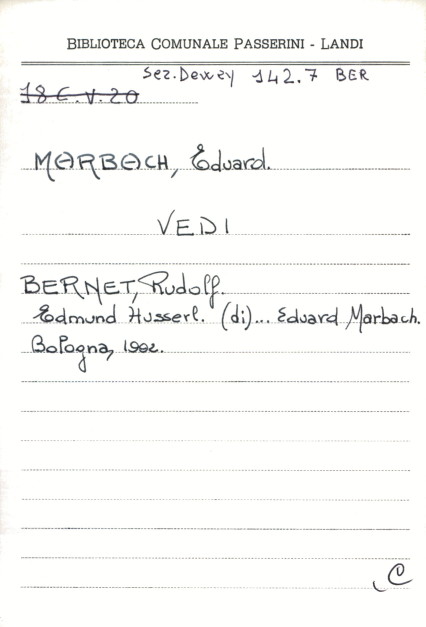 BIBLIOTECA COMUNALE PASSERINI - LANDI
Sez. Dewey 142.7 BER
18 C.V.20
MARBACH, Eduard.
VEDI
BERNET, Rudolf.
Edmund Husserl. (di)... Eduard Marbach.
Bologna, 1992.
C